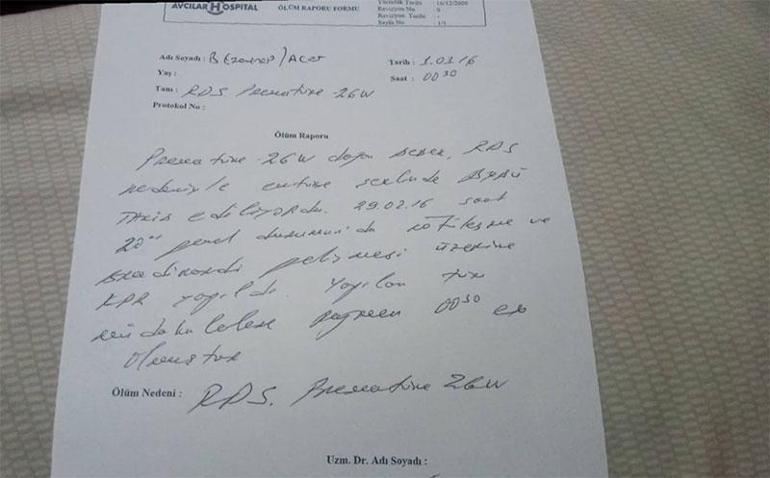 AVCILAR HOSPITAL
ÖLÜM RAPORU FORMU
Yürürlük Tarihi 16/12/2009
Revizyon No 0
Revizyon Tarihi -
Sayfa No 1/1
Adı Soyadı : B (Zeynep) / Acet
Tarih : 1.03.16
Yaş :
Saat : 00 30
Tanı : RDS. Prematüre 26W
Protokol No :
Ölüm Raporu
Prematüre 26W doğan bebek, RDS
nedeniyle entübe şekilde
takip ediliyordu. 29.02.16 saat
20 genel durumunda kötüleşme ve
Bradikardi gelişmesi üzerine
KPR yapıldı yapılan tüm
müdahalelere rağmen 00 30 ex
olmuştur
Ölüm Nedeni : RDS. Prematüre 26W
Uzm. Dr. Adı Soyadı :